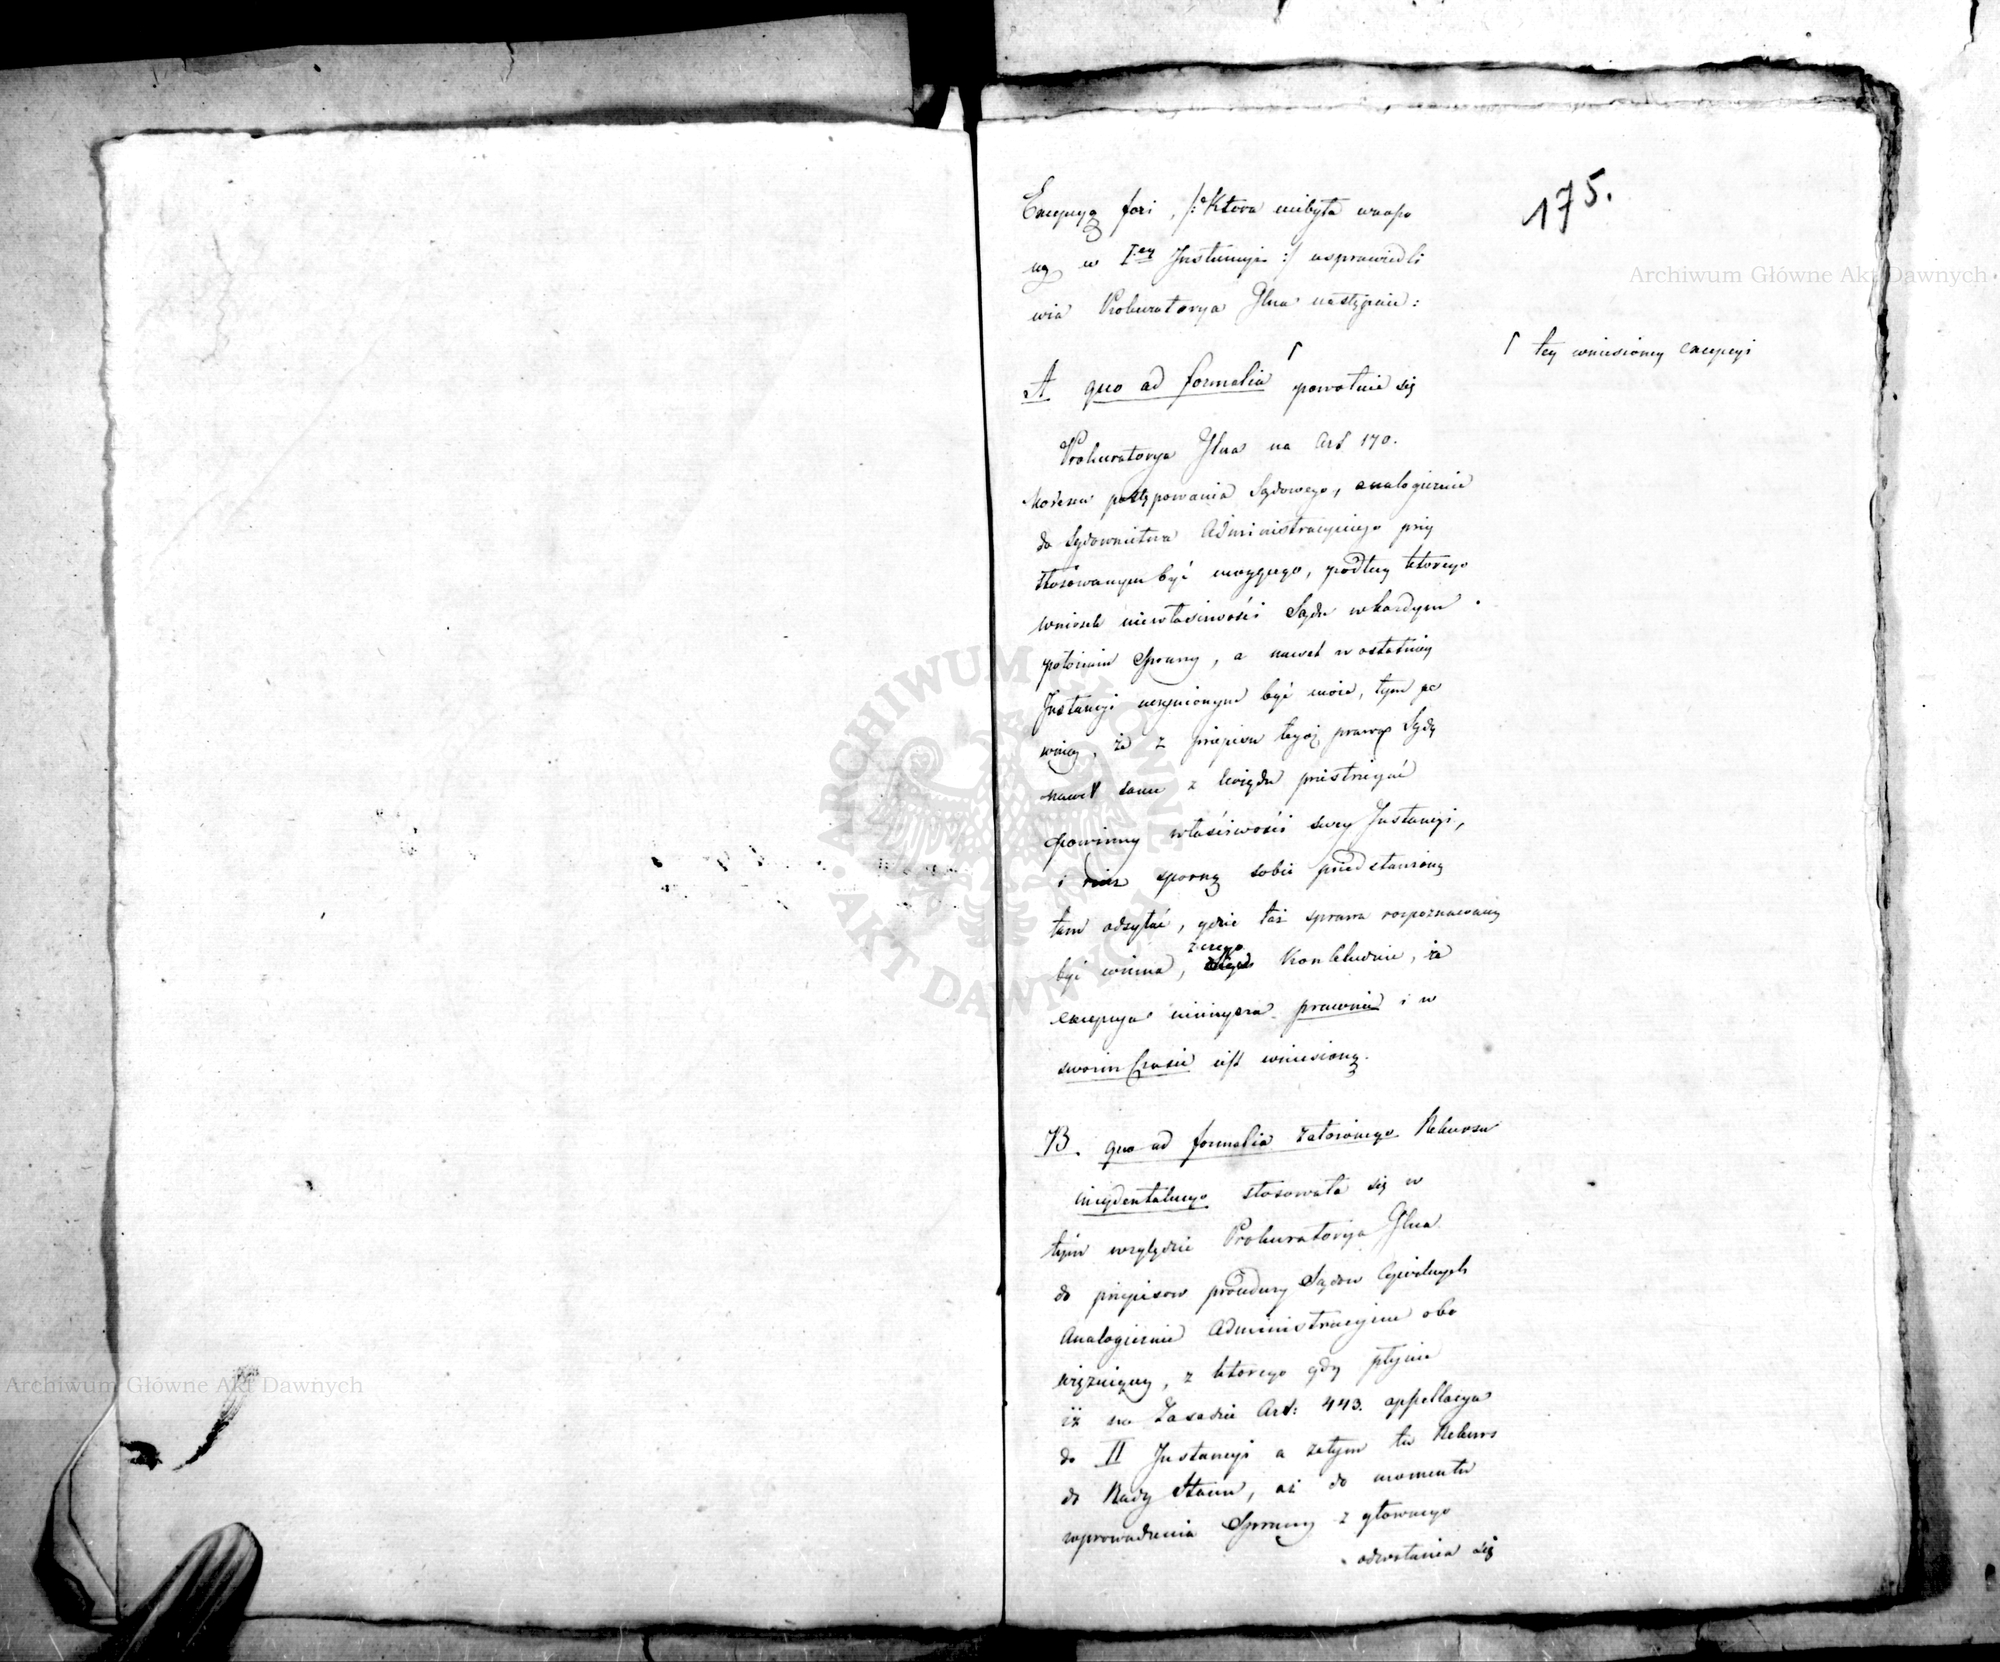 175.
Excepcyą fori, /: Ktora niebyła wnopo
ną w I<sup>ey</sup> Instancyi :/ usprawiedli
wia Prokuratorya Glna następnie:
A quo ad formalia ⌈ powołuie się
⌈ tey wniesioney excepcyi
Prokuratorya Glna na Art 170.
Kodexu postępowania Sądowego, analogicznie
do Sądownictwa Administracyinego przy
stosowanym być mogącego, podług ktorego
wniosek niewłaściwości Sądu w każdym
położeniu Sprawy, a nawet w ostatniey
Instancyi uczynionym być może, tym pe
wniey, że z przepisu tegoż prawa Sądy
nawet same z Urzędu przestrzegać
powinny właściwości swey Instancyi,
i rzecz sporną sobie przedstawioną
tam odsyłać, gdzie taż sprawa rozpoznawaną
być winna, z czego Konkluduie, że
excepcya ninieysza prawnie i w
swoim Czasie iest wniesioną.
B. quo ad formalia założonego Rekursu
incydentalnego stosowała się w
tym względzie Prokuratorya Glna
do przepisow procedury Sądow Cywilnych
Analogicznie Administracyine obo
wiązuiącey, z ktorego gdy płynie
iż na Zasadzie Art: 443. appellacya
do II Instancyi a zatym tu Rekurs
do Rady Stanu, aż do momentu
wprowadzenia Sprawy z głownego
odwołania się
Archiwum Główne Akt Dawnych
Archiwum Główne Akt Dawnych
ARCHIWUM GŁÓWNE
AKT DAWNYCH